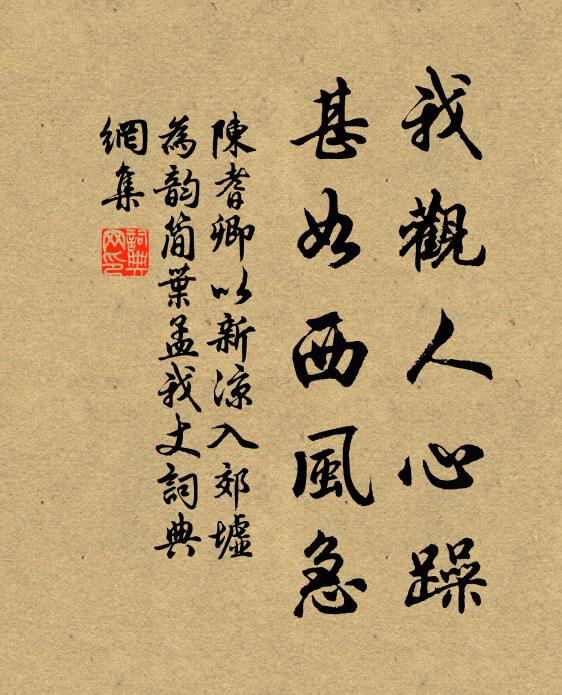 我觀人心躁
甚如西風急
陳耆卿以新涼入郊墟
為韵簡葉孟我丈詞典
網集
詞典
网印